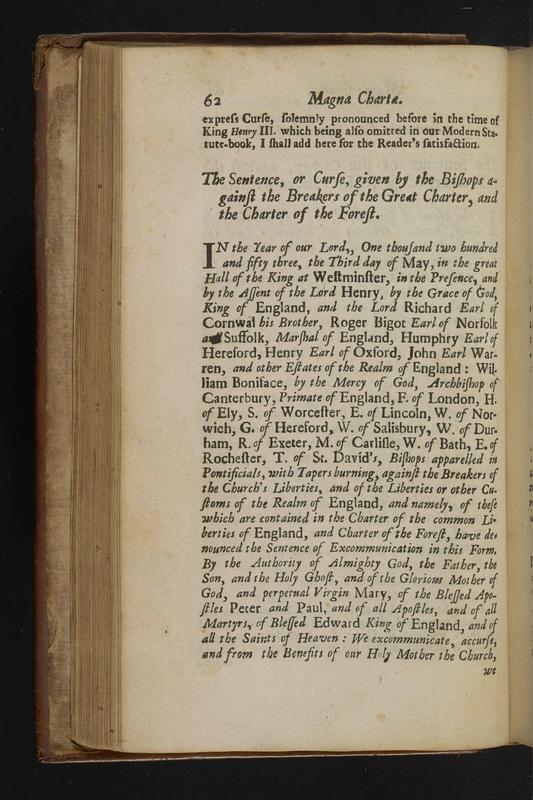 62 Magna Chartæ.
expreſs Curſe, ſolemnly pronounced before in the time of
King Henry III. which being alſo omitted in our Modern Sta-
tute-book, I ſhall add here for the Reader's ſatisfaction.
The Sentence, or Curſe, given by the Biſhops a-
gainſt the Breakers of the Great Charter, and
the Charter of the Foreſt.
IN the Year of our Lord,, One thouſand two hundred
and fifty three, the Third day of May, in the great
Hall of the King at Weſtminſter, in the Preſence, and
by the Aſſent of the Lord Henry, by the Grace of God,
King of England, and the Lord Richard Earl of
Cornwal his Brother, Roger Bigot Earl of Norfolk
and Suffolk, Marſhal of England, Humphry Earl of
Hereford, Henry Earl of Oxford, John Earl War-
ren, and other Eſtates of the Realm of England: Wil-
liam Boniface, by the Mercy of God, Archbiſhop of
Canterbury, Primate of England, F. of London, H.
of Ely, S. of Worceſter, E. of Lincoln, W. of Nor-
wich, G. of Hereford, W. of Salisbury, W. of Dur-
ham, R. of Exeter, M. of Carliſle, W. of Bath, E. of
Rocheſter, T. of St. David's, Biſhops apparelled in
Pontificials, with Tapers burning, againſt the Breakers of
the Church's Liberties, and of the Liberties or other Cu-
ſtoms of the Realm of England, and namely, of theſe
which are contained in the Charter of the common Li-
berties of England, and Charter of the Foreſt, have de-
nounced the Sentence of Excommunication in this Form.
By the Authority of Almighty God, the Father, the
Son, and the Holy Ghoſt, and of the Glorious Mother of
God, and perpetual Virgin Mary, of the Bleſſed Apo-
ſtles Peter and Paul, and of all Apoſtles, and of all
Martyrs, of Bleſſed Edward King of England, and of
all the Saints of Heaven: We excommunicate, accurſe,
and from the Benefits of our Holy Mother the Church,
we